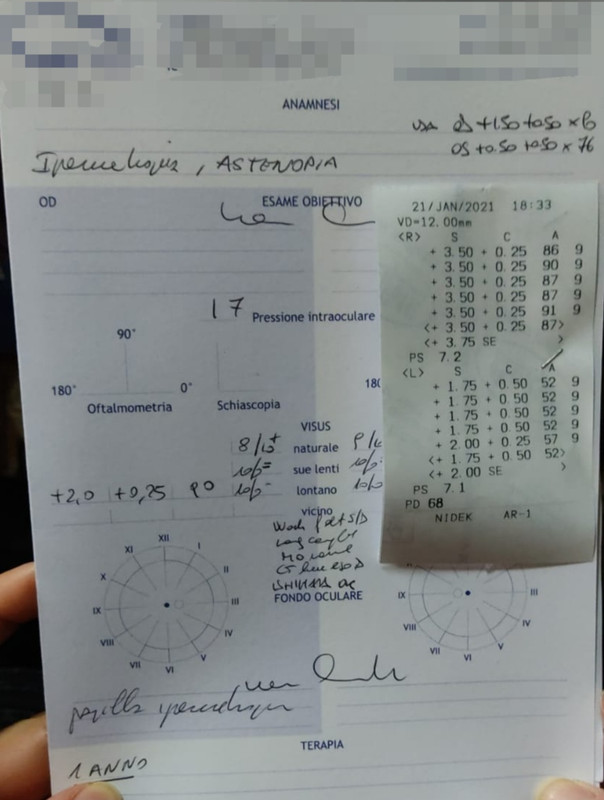 ANAMNESI
OD +1.50 +0.50 × 6
OS +0.50 +0.50 × 76
Ipermetropia, ASTENOPIA
OD
ESAME OBIETTIVO
17 Pressione intraoculare
90°
180° 0°
180
Oftalmometria Schiascopia
VISUS
8/10+ naturale
10/10= sue lenti
+2,0 +0,25 90 10/10- lontano
vicino
FONDO OCULARE
XII
XI I
X II
IX III
VIII IV
VII V
VI
IX III
VIII IV
VII V
VI
papilla ipermetropica
TERAPIA
1 ANNO
21/JAN/2021 18:33
VD=12.00mm
<R> S C A
+ 3.50 + 0.25 86 9
+ 3.50 + 0.25 90 9
+ 3.50 + 0.25 87 9
+ 3.50 + 0.25 87 9
+ 3.50 + 0.25 91 9
<+ 3.50 + 0.25 87>
<+ 3.75 SE >
PS 7.2
<L> S C A
+ 1.75 + 0.50 52 9
+ 1.75 + 0.50 52 9
+ 1.75 + 0.50 52 9
+ 1.75 + 0.50 52 9
+ 2.00 + 0.25 57 9
<+ 1.75 + 0.50 52>
<+ 2.00 SE >
PS 7.1
PD 68
NIDEK AR-1